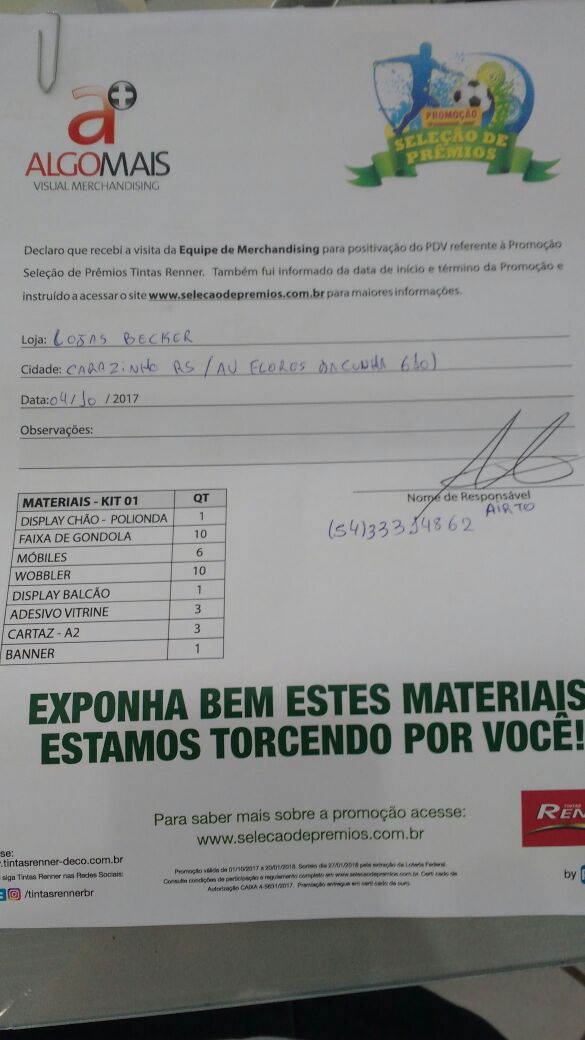 a+
ALGOMAIS
VISUAL MERCHANDISING
PROMOÇÃO
SELEÇÃO DE
PRÊMIOS
Declaro que recebi a visita da Equipe de Merchandising para positivação do PDV referente à Promoção
Seleção de Prêmios Tintas Renner. Também fui informado da data de início e término da Promoção e
instruído a acessar o site www.selecaodepremios.com.br para maiores informações.
Loja: LOJAS BECKER
Cidade: CARAZINHO RS / AV FLORES DACUNHA 610)
Data: 04/10 / 2017
Observações:
Nome de Responsável
AIRTO
(54)33314862
MATERIAIS - KIT 01 QT
DISPLAY CHÃO - POLIONDA 1
FAIXA DE GONDOLA 10
MÓBILES 6
WOBBLER 10
DISPLAY BALCÃO 1
ADESIVO VITRINE 3
CARTAZ - A2 3
BANNER 1
EXPONHA BEM ESTES MATERIAIS
ESTAMOS TORCENDO POR VOCÊ!
Para saber mais sobre a promoção acesse:
www.selecaodepremios.com.br
TINTAS
REN
se:
.tintasrenner-deco.com.br
siga Tintas Renner nas Redes Sociais:
/tintasrennerbr
Promoção válida de 01/10/2017 a 20/01/2018. Sorteio dia 27/01/2018 pela extração da Loteria Federal.
Consulte condições de participação e regulamento completo em www.selecaodepremios.com.br. Certificado de
Autorização CAIXA 4-5631/2017. Premiação entregue em certificado de ouro.
by